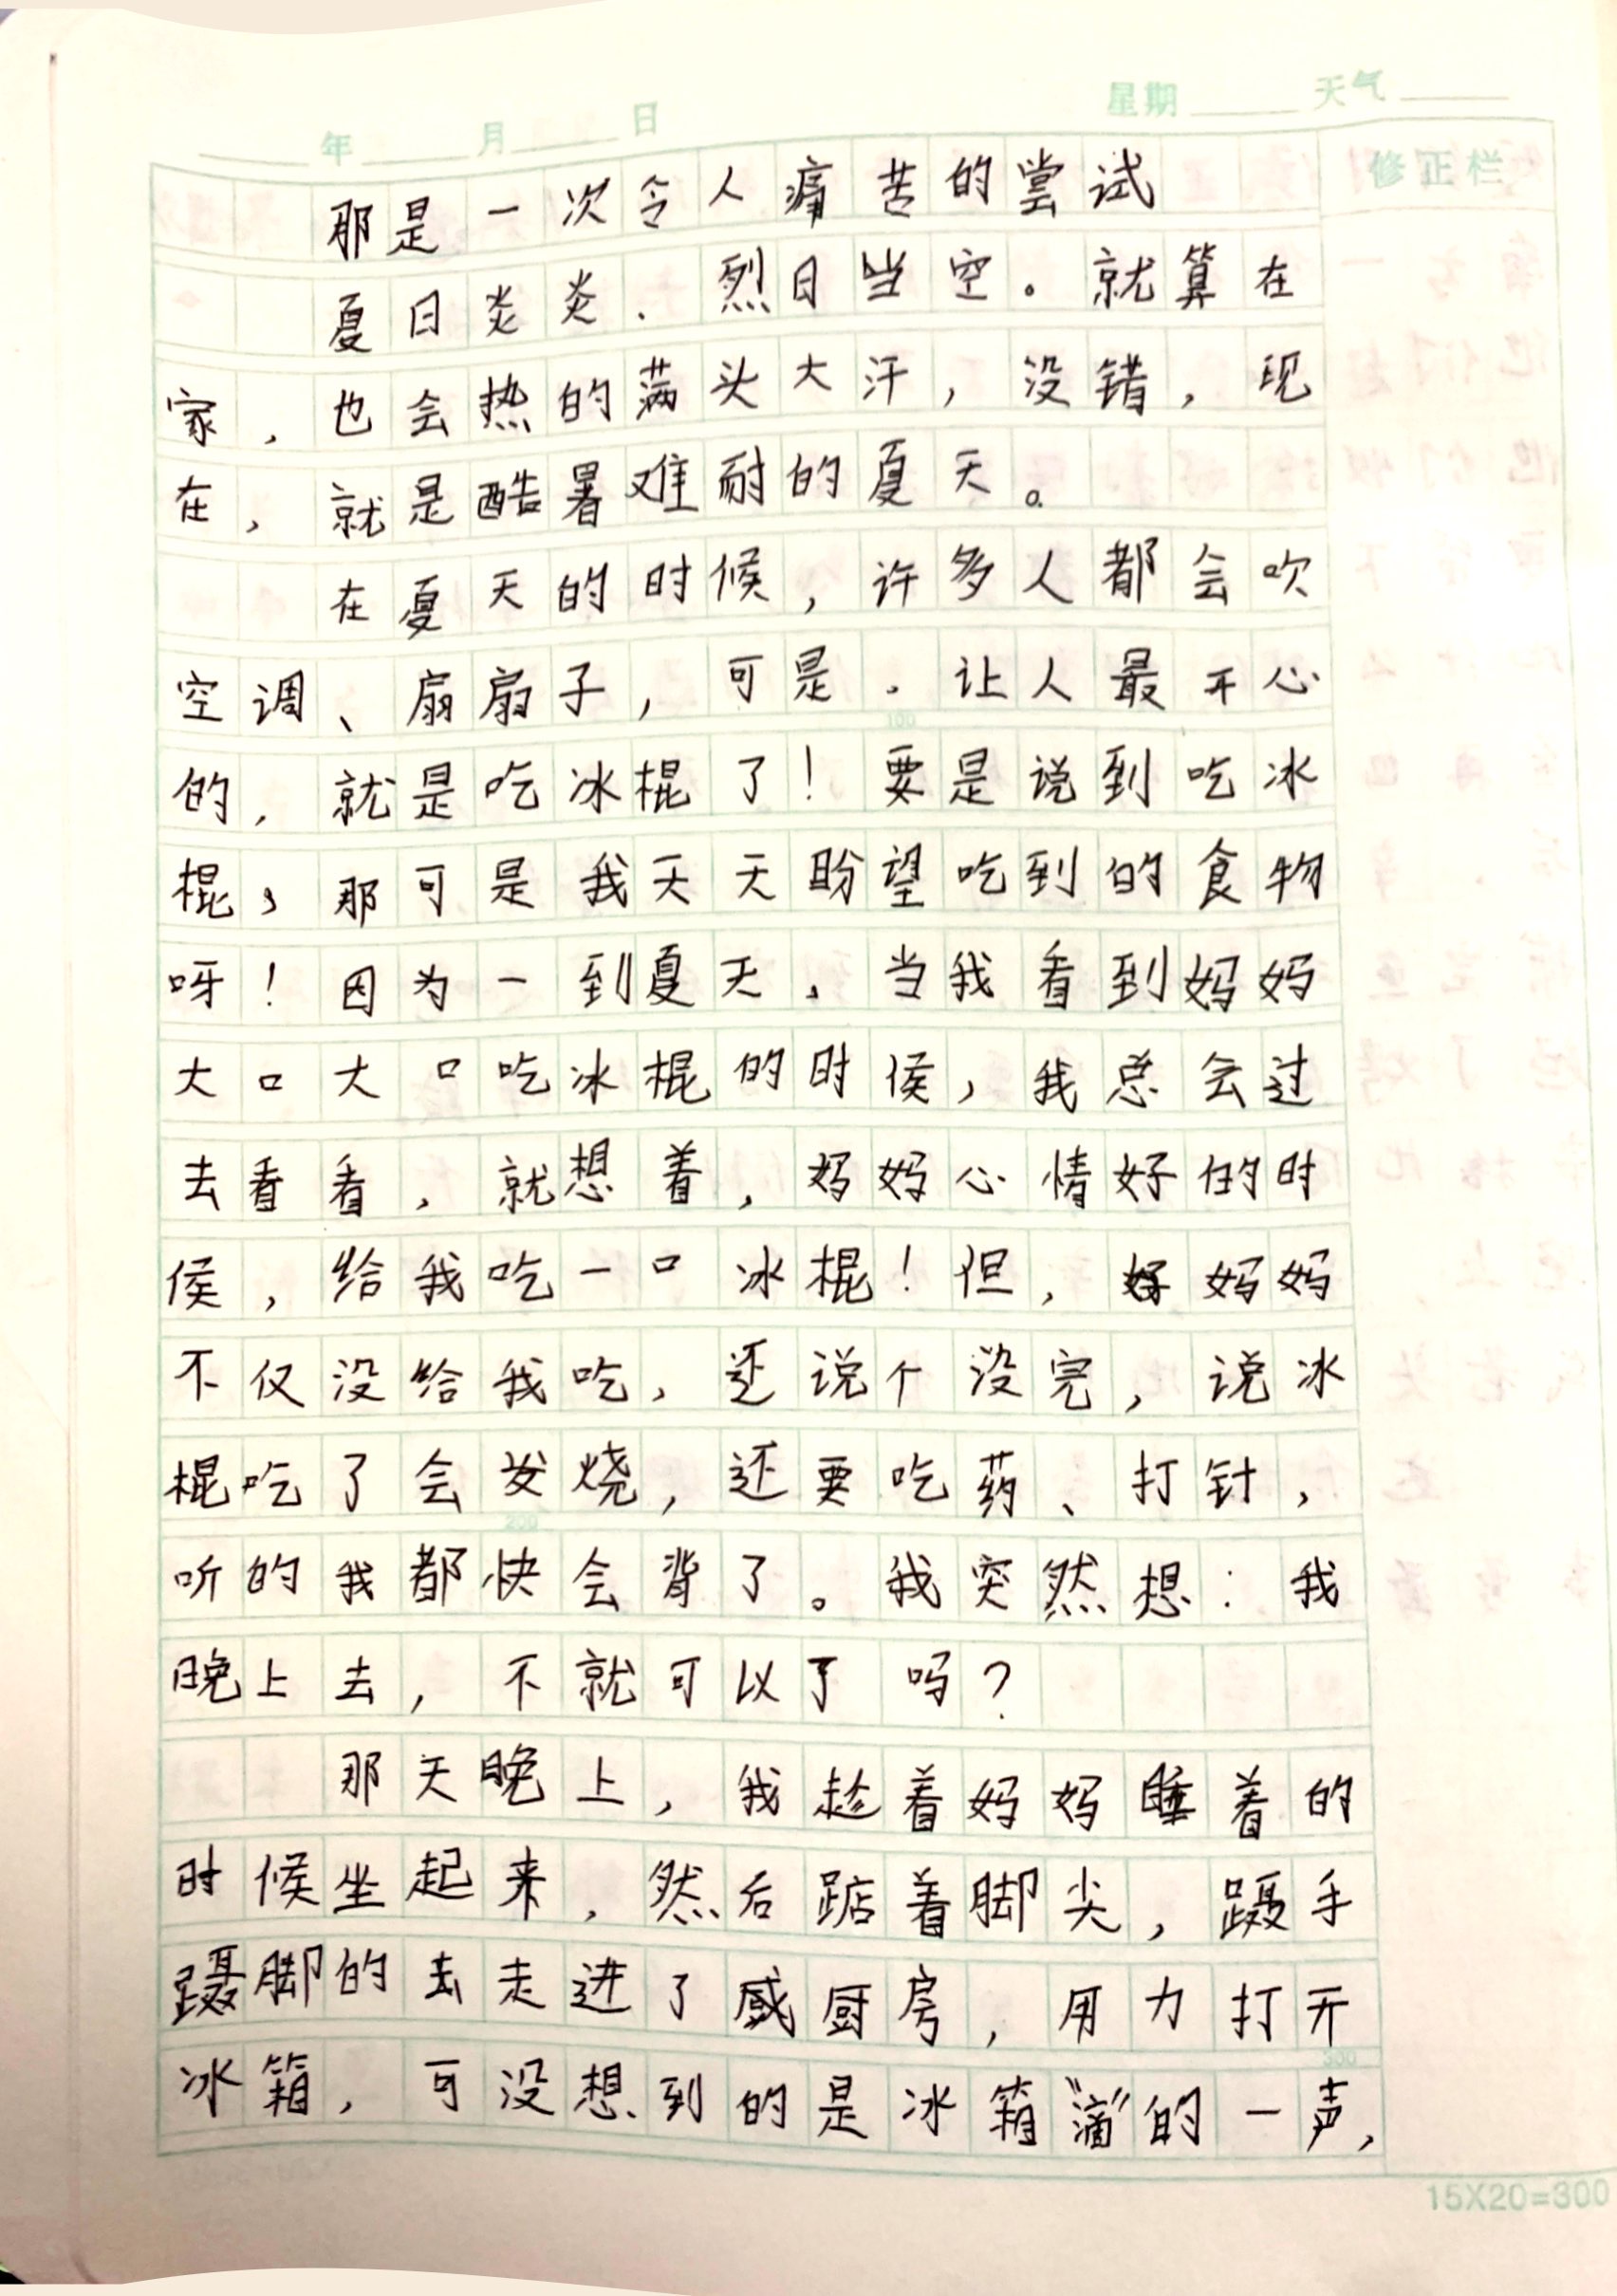 年 月 日 星期 天气
修正栏
那是一次令人痛苦的尝试
夏日炎炎.烈日当空。就算在
家,也会热的满头大汗,没错,现
在,就是酷暑难耐的夏天。
在夏天的时候,许多人都会吹
空调、扇扇子,可是.让人最开心
的,就是吃冰棍了!要是说到吃冰
棍,那可是我天天盼望吃到的食物
呀!因为一到夏天,当我看到妈妈
大口大口吃冰棍的时侯,我总会过
去看看,就想着,妈妈心情好的时
侯,给我吃一口冰棍!但,好妈妈
不仅没给我吃,还说个没完,说冰
棍吃了会发烧,还要吃药、打针,
听的我都快会背了。我突然想:我
晚上去,不就可以了吗?
那天晚上,我趁着妈妈睡着的
时候坐起来,然后踮着脚尖,蹑手
蹑脚的去走进了厨房,用力打开
100
200
300
冰箱,可没想到的是冰箱“滴”的一声,
15X20=300